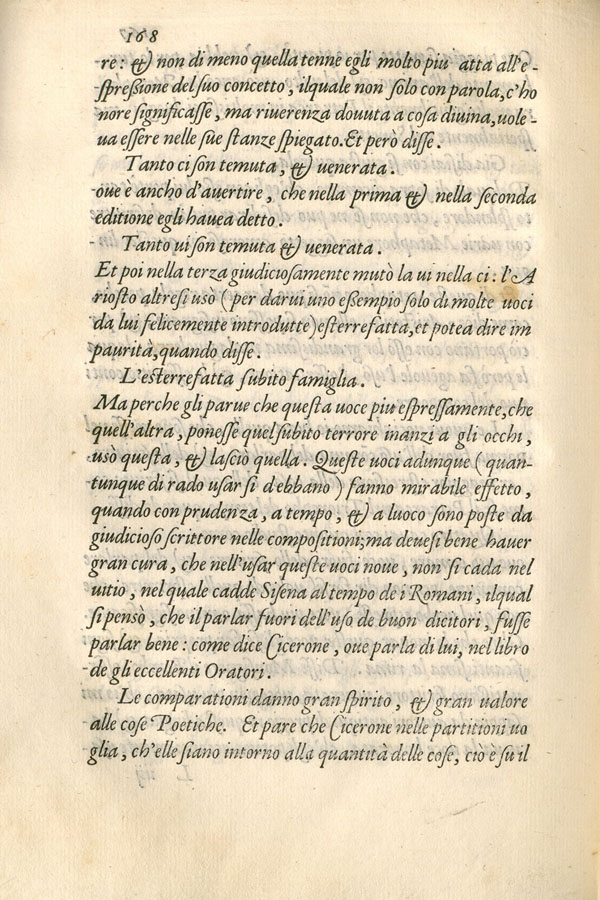 168
re: & non di meno quella tenne egli molto piu atta all'e-
spreßione del suo concetto, ilquale non solo con parola, c'ho
nore significasse, ma riverenza dovuta a cosa divina, uole-
ua essere nelle sue stanze spiegato. Et però disse.
Tanto ci son temuta, & venerata.
oue è ancho d'avertire, che nella prima & nella seconda
editione egli hauea detto.
Tanto vi son temuta & venerata.
Et poi nella terza giudiciosamente mutò la ui nella ci: l'A
riosto altresi usò (per darui uno eßempio solo di molte uoci
da lui felicemente introdutte) esterrefatta, et potea dire im
paurità, quando disse.
L'esterrefatta subito famiglia.
Ma perche gli parue che questa uoce piu espressamente, che
quell'altra, ponesse quel subito terrore inanzi a gli occhi,
usò questa, & lasciò quella. Queste uoci adunque (quan-
tunque di rado usar si debbano) fanno mirabile effetto,
quando con prudenza, a tempo, & a luoco sono poste da
giudicioso scrittore nelle compositioni; ma deuesi bene hauer
gran cura, che nell'usar queste uoci noue, non si cada nel
uitio, nel quale cadde Sisena al tempo de i Romani, ilqual
si pensò, che il parlar fuori dell'uso de buon dicitori, fusse
parlar bene: come dice Cicerone, oue parla di lui, nel libro
de gli eccellenti Oratori.
Le comparationi danno gran spirito, & gran ualore
alle cose Poetiche. Et pare che Cicerone nelle partitioni uo
glia, ch'elle siano intorno alla quantità delle cose, ciò è su il